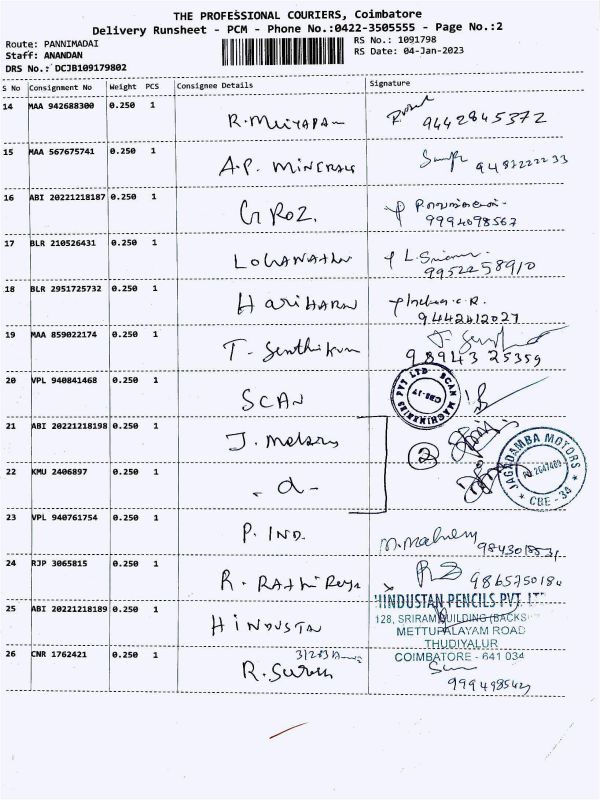 THE PROFESSIONAL COURIERS, Coimbatore
Delivery Runsheet - PCM - Phone No.:0422-3505555 - Page No.:2
Route: PANNIMADAI
RS No.: 1091798
Staff: ANANDAN
RS Date: 04-Jan-2023
DRS No.: DCJB109179802
S No Consignment No Weight PCS Consignee Details Signature
14 MAA 942688300 0.250 1
R. Meiyapan
9442845372
15 MAA 567675741 0.250 1
A.P. MINERALS
16 ABI 20221218187 0.250 1
GROZ.
9994098567
17 BLR 210526431 0.250 1
LOGANATHN
9952258910
18 BLR 2951725732 0.250 1
HARIHARN
9442412027
19 MAA 859022174 0.250 1
T. Senthikum
98943 25359
20 VPL 940841468 0.250 1
SCAN
SCAN MACHINERIES PVT LTD
CBE-17
21 ABI 20221218198 0.250 1
J. Motors
2
JAGADAMBA MOTORS
CBE - 34
22 KMU 2406897 0.250 1
23 VPL 940761754 0.250 1
P. IND.
24 RJP 3065815 0.250 1
R. Rathi
9865750184
25 ABI 20221218189 0.250 1
HINDUSTN
HINDUSTAN PENCILS PVT. LTD
128, SRIRAM BUILDING (BACKS
METTUPALAYAM ROAD
THUDIYALUR
COIMBATORE - 641 034
26 CNR 1762421 0.250 1
R. Suresh